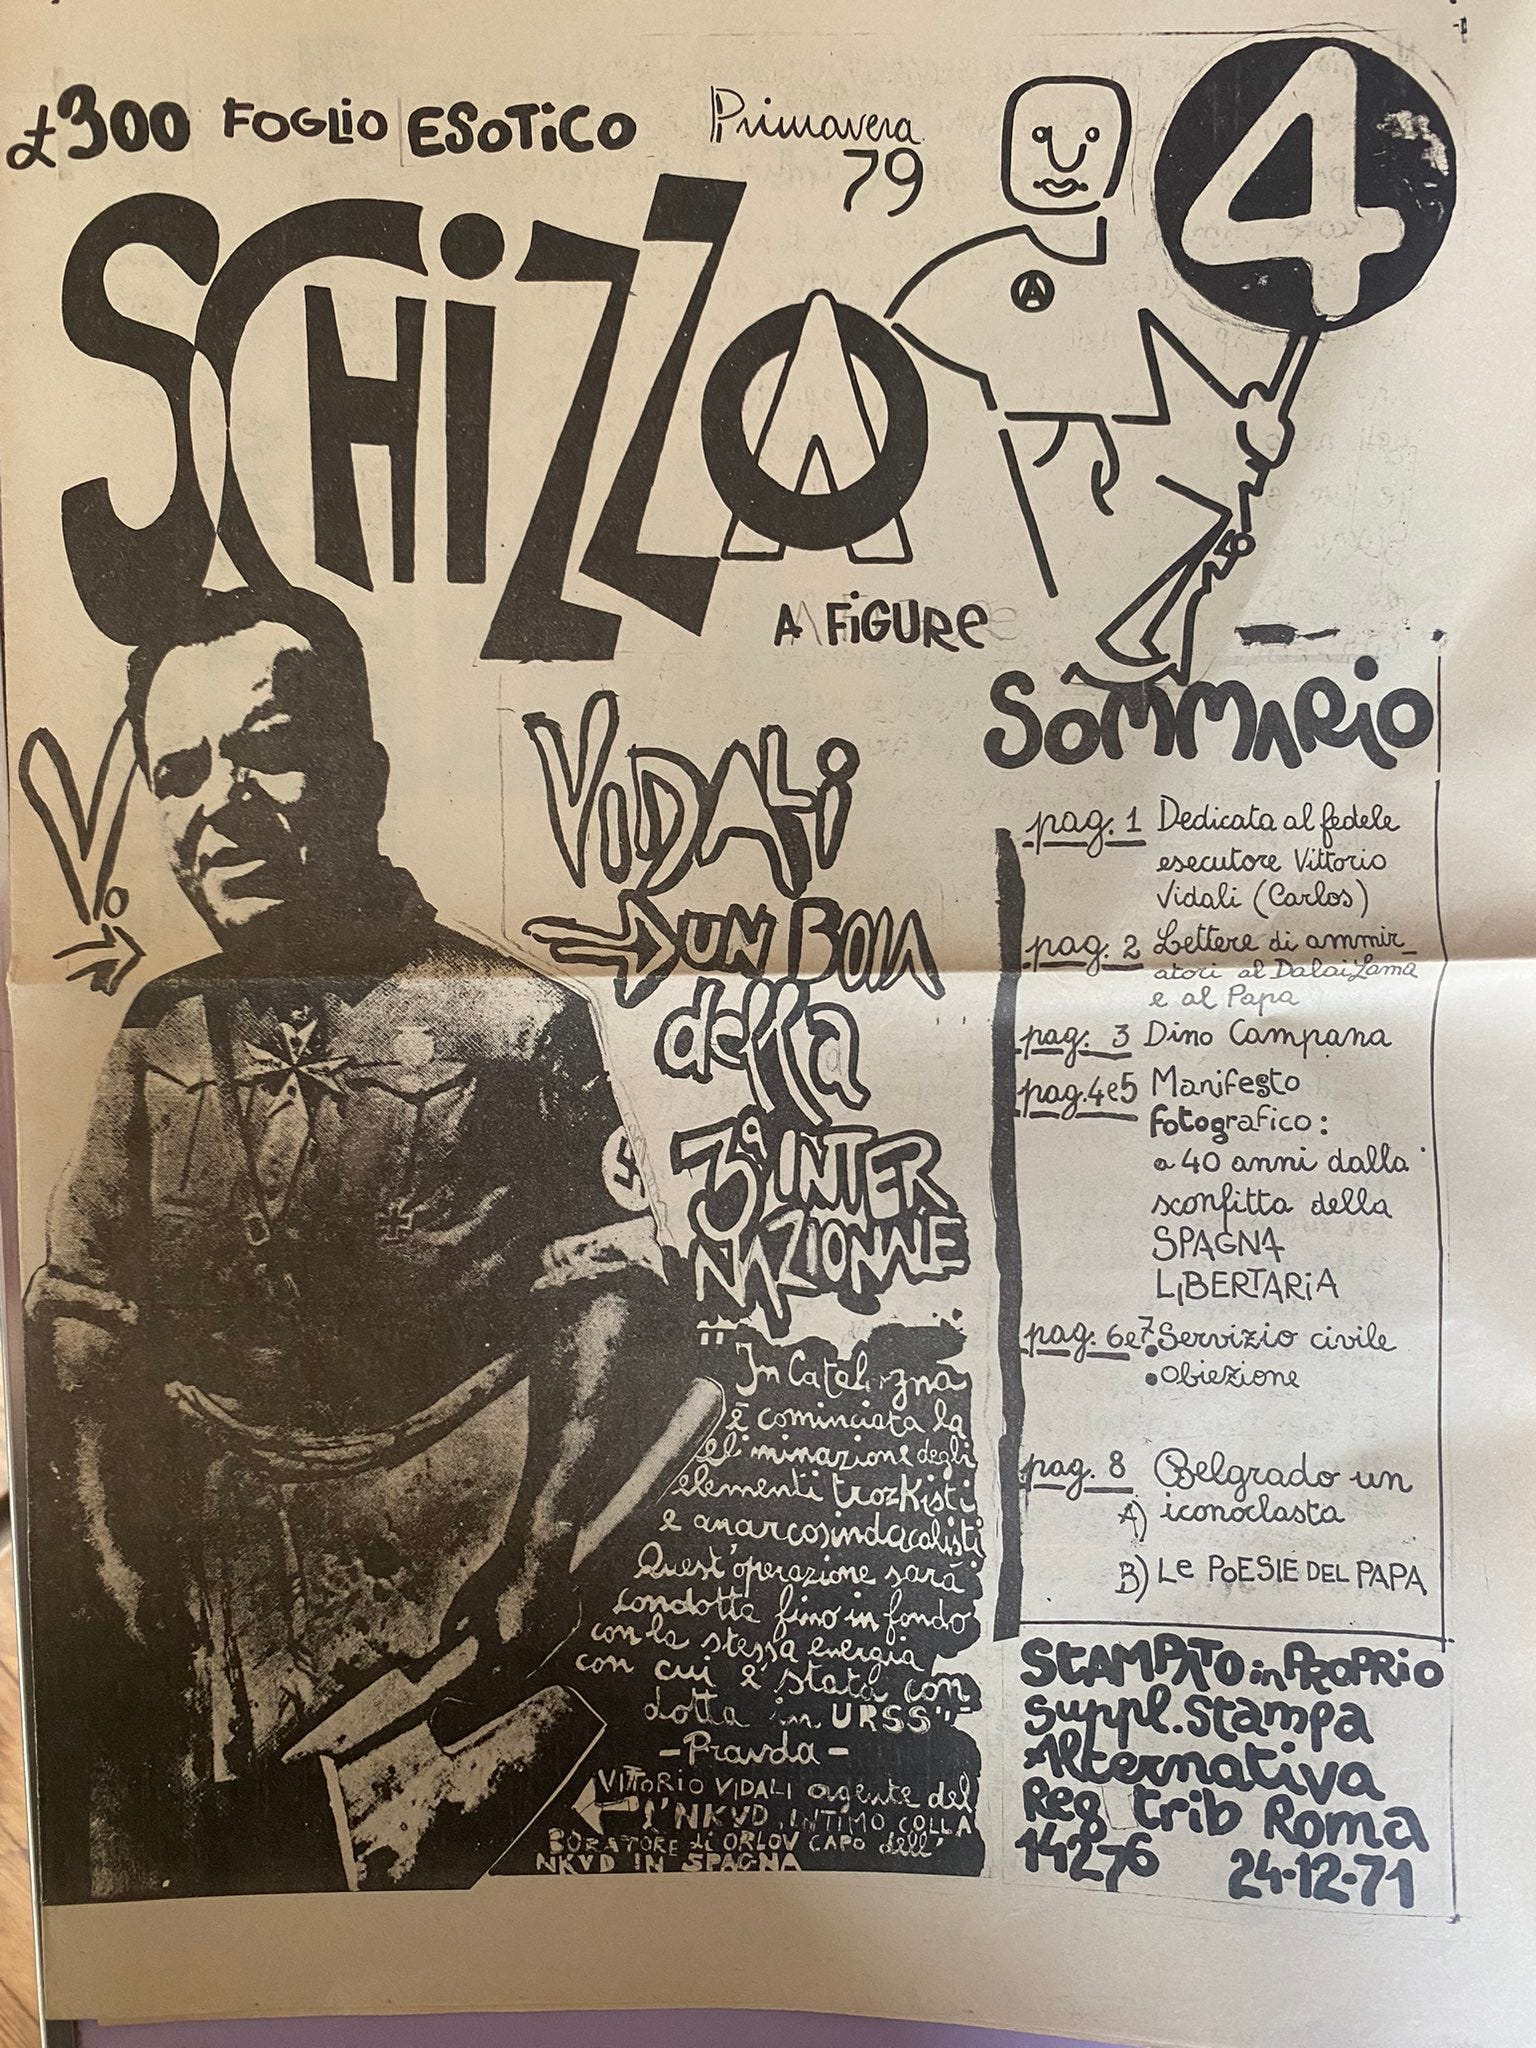 £300 FOGLIO ESOTICO
Primavera
79
4
SCHIZZO
A
A FIGURE
V.
VIDALI
UN BOIA
della
3ª INTER
NAZIONALE
"In Catalogna
è cominciata la
eliminazione degli
elementi trozkisti
e anarcosindacalisti
Quest'operazione sarà
condotta fino in fondo
con la stessa energia
con cui è stata con
dotta in URSS"
-Pravda-
VITTORIO VIDALI agente del
l'NKVD, INTIMO COLLA
BORATORE di ORLOV CAPO dell'
NKVD IN SPAGNA
SOMMARIO
pag. 1 Dedicata al fedele
esecutore Vittorio
Vidali (Carlos)
pag. 2 Lettere di ammir_
atori al Dalai Lama
e al Papa
pag. 3 Dino Campana
pag. 4e5 Manifesto
fotografico:
a 40 anni dalla
sconfitta della
SPAGNA
LIBERTARIA
pag. 6e7 • Servizio civile
• Obiezione
pag. 8 Belgrado un
A) iconoclasta
B) Le POESIE DEL PAPA
STAMPATO in PROPRIO
suppl. Stampa
Alternativa
Reg trib Roma
14276 24-12-71